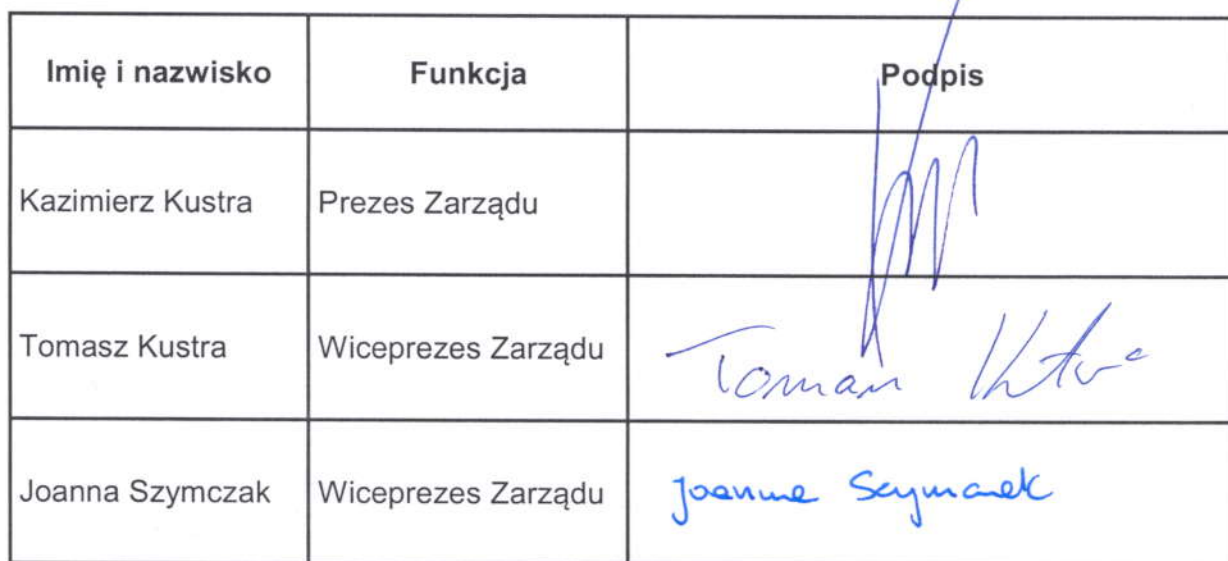 Imię i nazwisko Funkcja Podpis
Kazimierz Kustra Prezes Zarządu
Tomasz Kustra Wiceprezes Zarządu Tomasz Kustra
Joanna Szymczak Wiceprezes Zarządu Joanna Szymczak